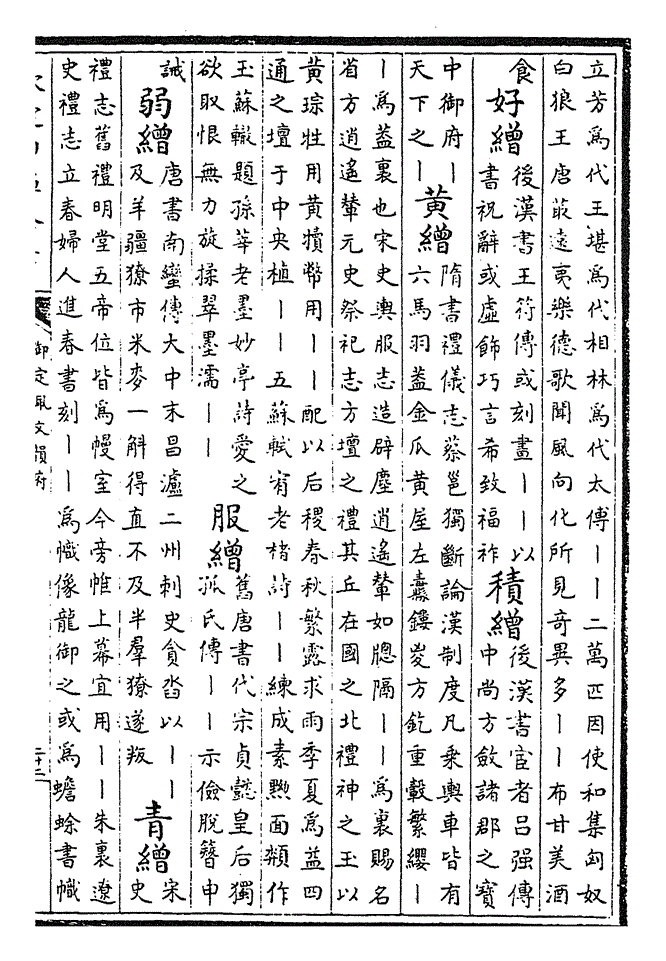 立芳為代王堪為代相林為代太傅丨丨二萬匹因使和集匈奴
白狼王唐菆遠夷樂德歌聞風向化所見竒異多丨丨布甘美酒
食
好繒
後漢書王符傳或刻畫丨丨以
書祝辭或虛飾巧言希致福祚
積繒
後漢書宦者吕强傳
中尚方斂諸郡之寶
中御府丨
天下之丨
黃繒
隋書禮儀志蔡邕獨斷論漢制度凡乘輿車皆有
六馬羽蓋金瓜黃屋左纛鏤㚇方釳重轂繁纓丨
丨為蓋裏也宋史輿服志造辟塵逍遙輦如牕隔丨丨為裏賜名
省方逍遙輦元史祭祀志方壇之禮其丘在國之北禮神之玉以
黃琮牲用黃犢幣用丨丨配以后稷春秋繁露求雨季夏為葢四
通之壇于中央植丨丨五蘇軾宥老楮詩丨丨練成素黝面頮作
玉蘇轍題孫莘老墨妙亭詩愛之
欲取恨無力旋揉翠墨濡丨丨
服繒
舊唐書代宗貞懿皇后獨
孤氏傳丨丨示儉脫簪申
誡
弱繒
唐書南蠻傳大中末昌瀘二州刺史貪沓以丨丨
及羊疆獠市米麥一斛得直不及半羣獠遂叛
青繒
宋
史
禮志舊禮明堂五帝位皆為幔室今旁帷上幕宜用丨丨朱裏遼
史禮志立春婦人進春書刻丨丨為幟像龍御之或為蟾蜍書幟
御定佩文韻府